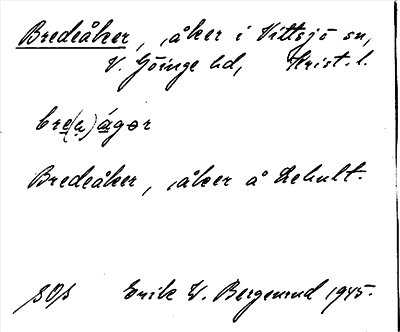 Bredeåker, åker i Vittsjö sn,
V. Göinge hd, Krist. l.
bre(n)ágər
Bredeåker, åker å Lehult.
SOS Erik W. Bergenrud 1945.